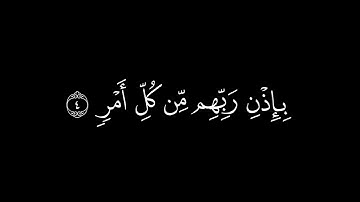 بِإِذْنِ رَبِّهِم مِّن كُلِّ أَمْرٍ ٤